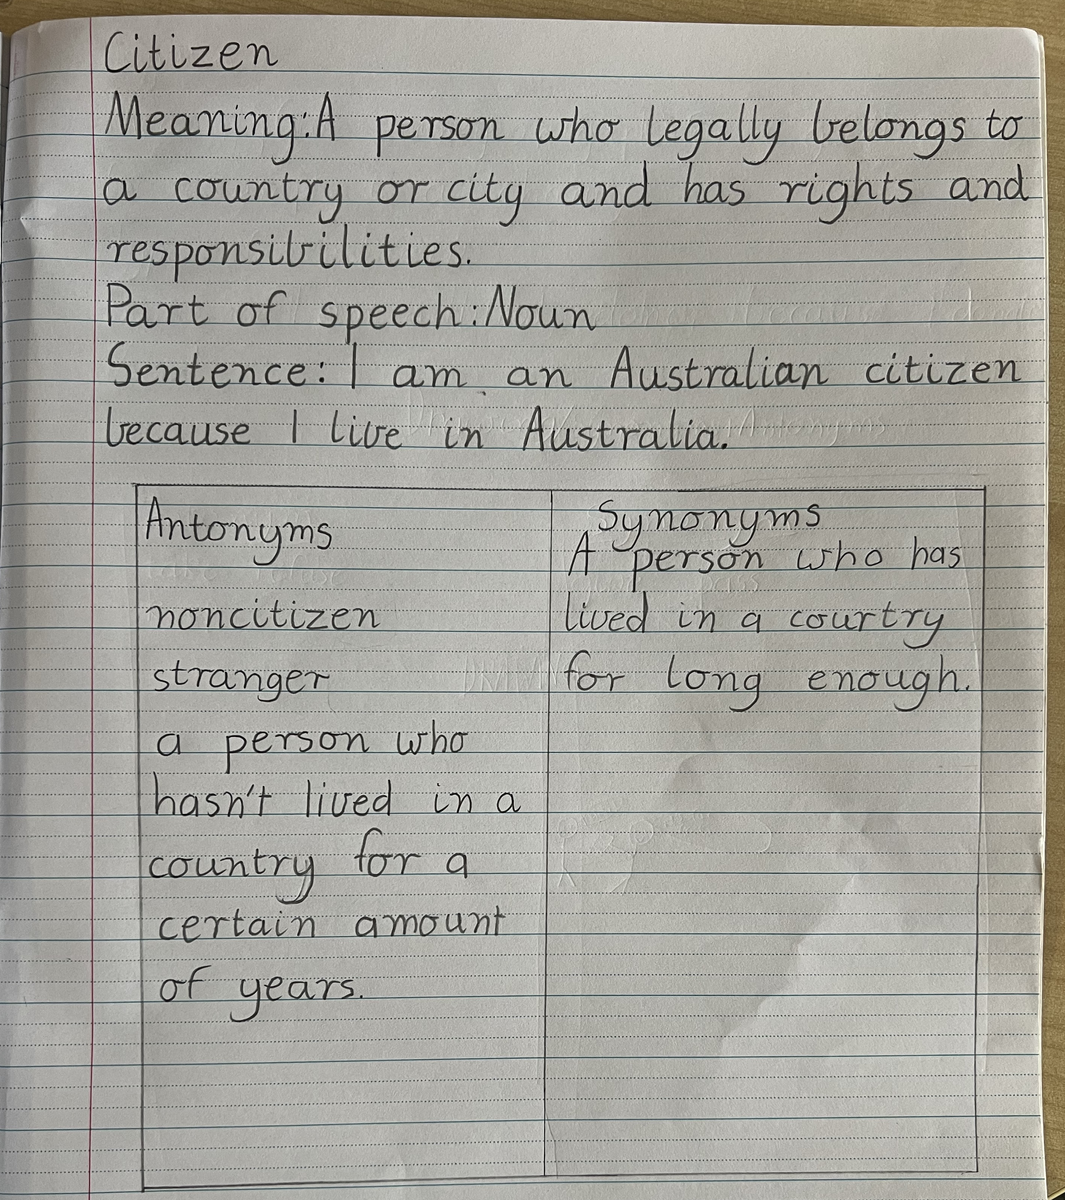 Citizen
Meaning:A person who legally belongs to
a country or city and has rights and
responsibilities.
Part of speech:Noun
Sentence: I am an Australian citizen
because I live in Australia.
Antonyms
noncitizen
stranger
a person who
hasn't lived in a
country for a
certain amount
of years.
Synonyms
A person who has
lived in a courtry
for long enough.